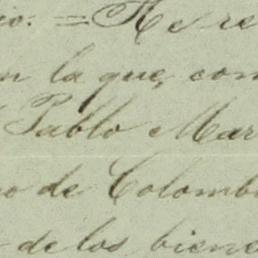 io. = He re
n la que, com
Pablo Mar
o de Colomb
de los biene